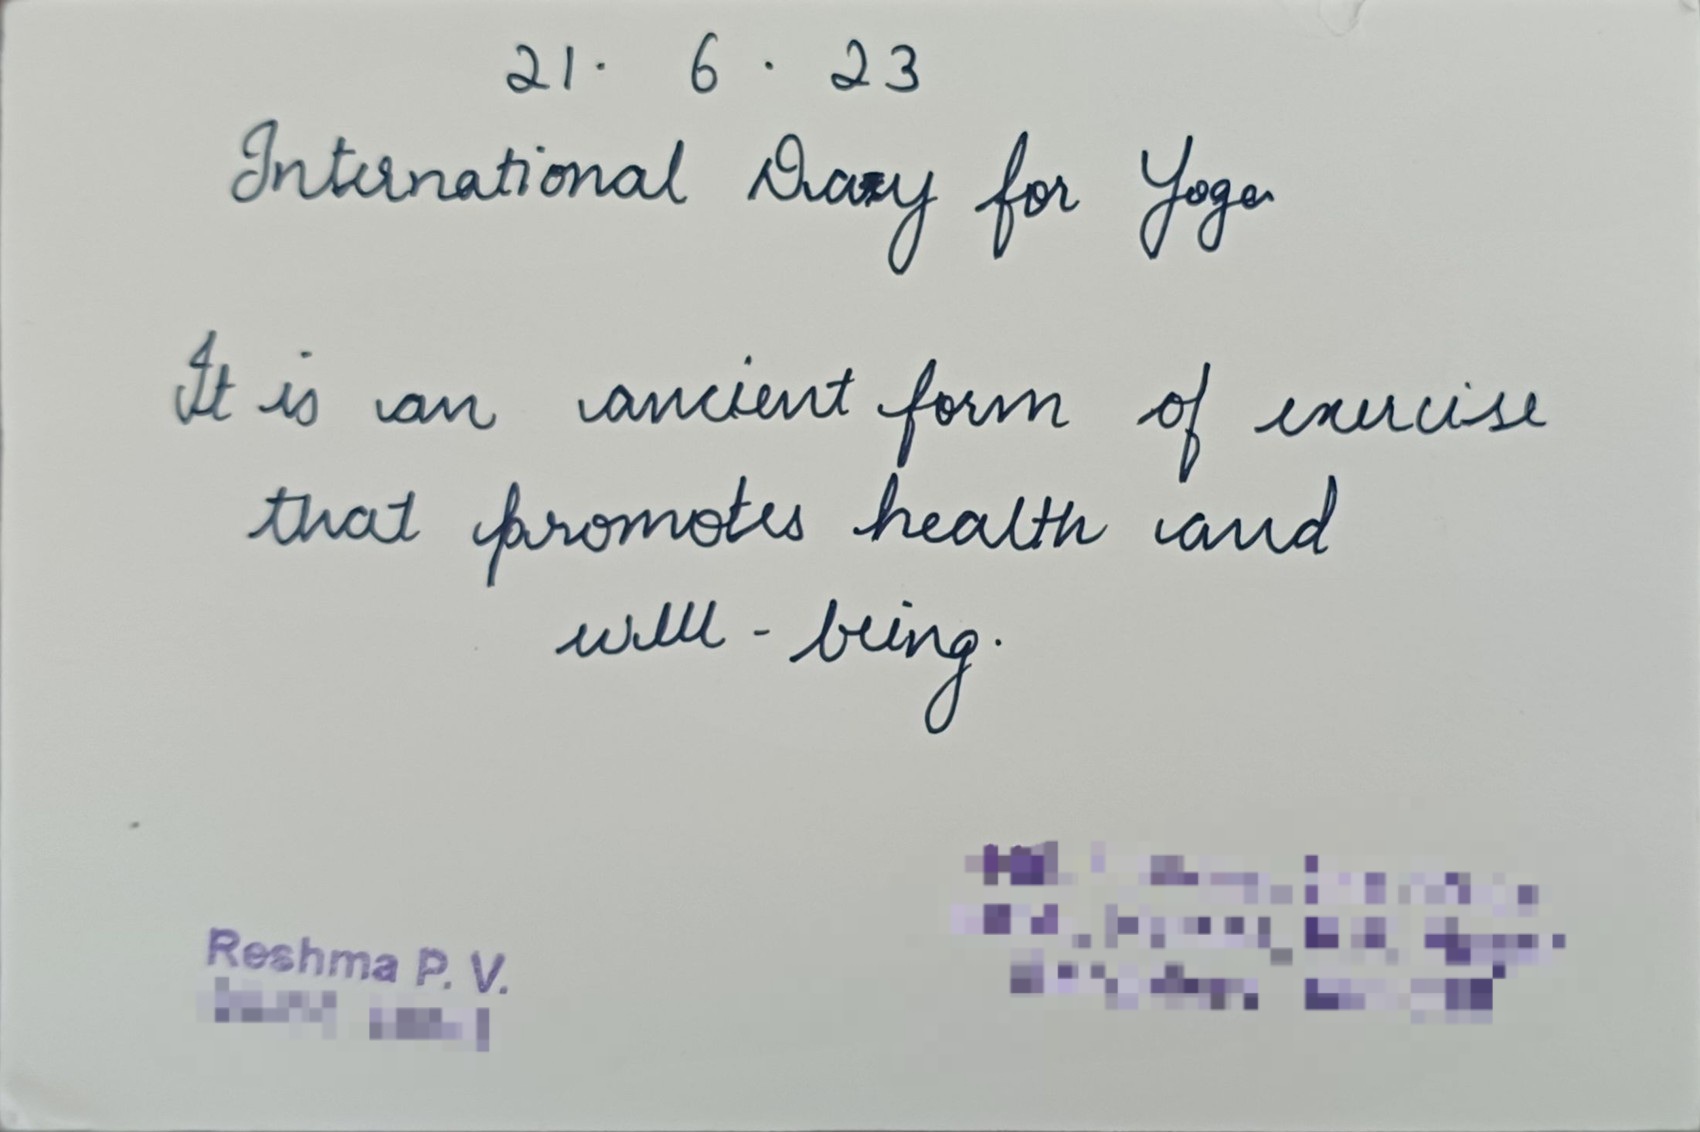 21. 6. 23
International Day for Yoga
It is an ancient form of exercise
that promotes health and
well-being.
Reshma P. V.